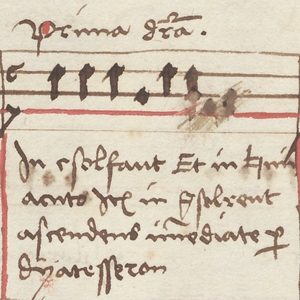 Prima dr̃a.
In csolfaut Et in
acuto Itē in gsolreut
ascendens im̄ediate ꝑ
dyatesseron